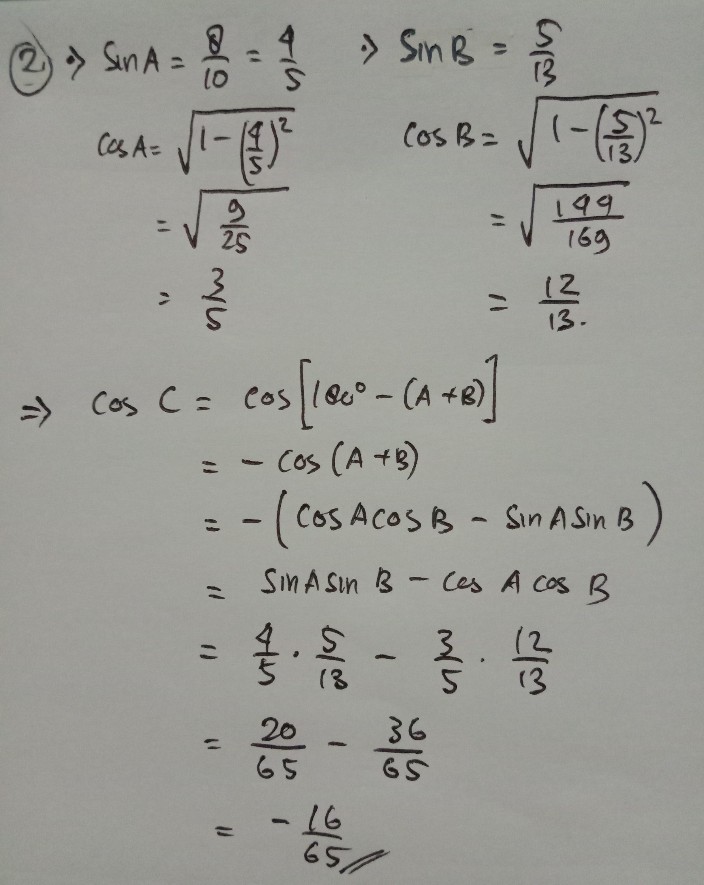 ② ⇒ Sin A = 8/10 = 4/5 ⇒ Sin B = 5/13
Cos A = √(1-(4/5)²) Cos B = √(1-(5/13)²)
= √(9/25) = √(144/169)
= 3/5 = 12/13.
⇒ Cos C = Cos [180° - (A+B)]
= - Cos (A+B)
= - (Cos A Cos B - Sin A Sin B)
= Sin A Sin B - Cos A Cos B
= 4/5 · 5/13 - 3/5 · 12/13
= 20/65 - 36/65
= -16/65 //